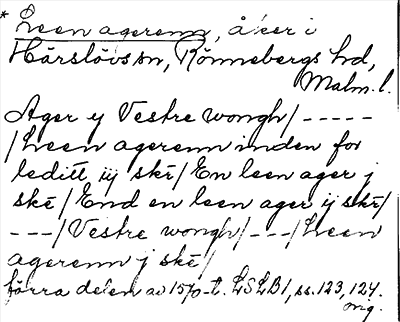 * Leen agerenn, åker i
Härslövs sn, Rönnebergs hd,
Malm. l.
Ager y Vestre wongh / - - - - -
/ Leen agerenn inden for
leditt iij skē / En leen ager j
skē / End en leen ager ij skē /
- - - / Vestre wongh / - - - / Leen
agerenn j skē /
förra delen av 1570-t. LSLB1, ss. 123, 124.
orig.